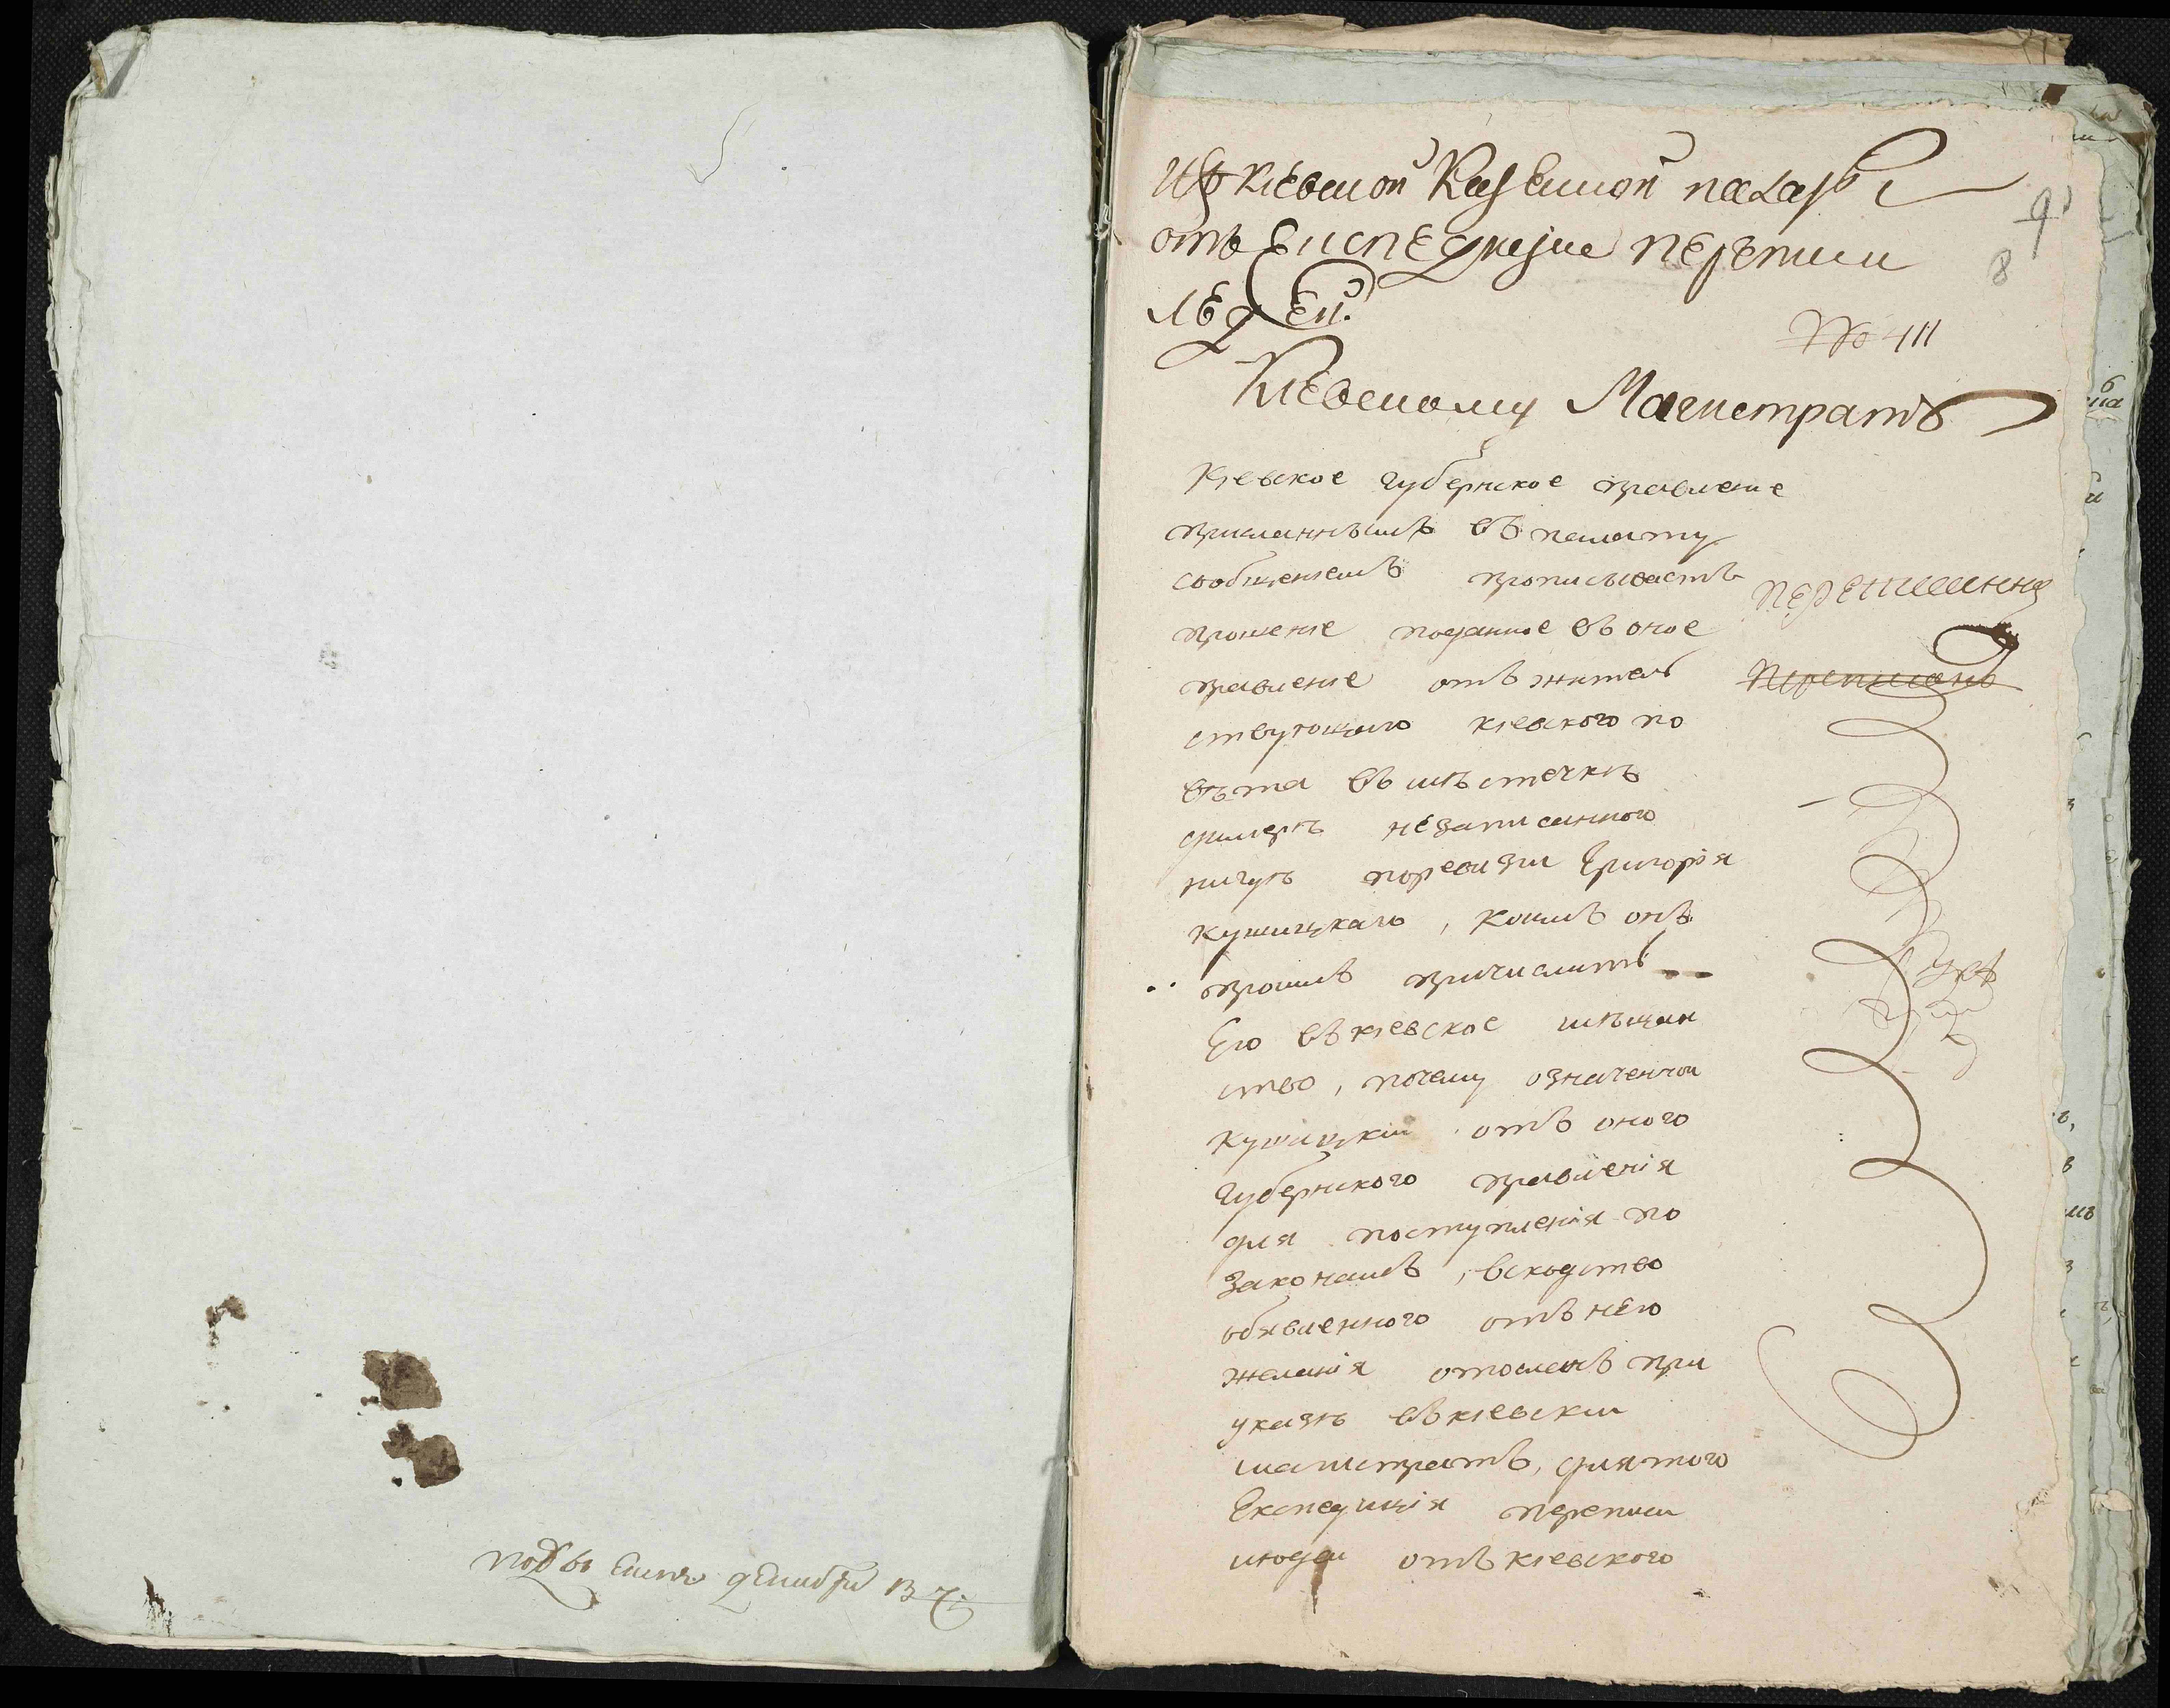 Изъ Кіевской Казенной палаты
отъ Експедиціи переписи
людей.
9
8
№ 411
Кіевскому Магистрату
Кіевское губернское правление
присланнымъ въ палату
сообщениемъ прописываетъ
прошение поданное въ оное
правление отъ житель
ствующого киевского по
вѣта въ мѣстечкѣ
димеръ незаписанного
нигдѣ поревизии Григорія
Кушицкаго, коимъ онъ
просилъ причислить
Его въ киевское мѣщан
ство, почему означенной
Кушицкии отъ оного
Губернского правленія
для поступленія по
законамъ, всходство
объявленного отъ него
желанія отосланъ при
указѣ въ киевскии
магистратъ, длятого
Експедиція переписи
людеи отъ киевского